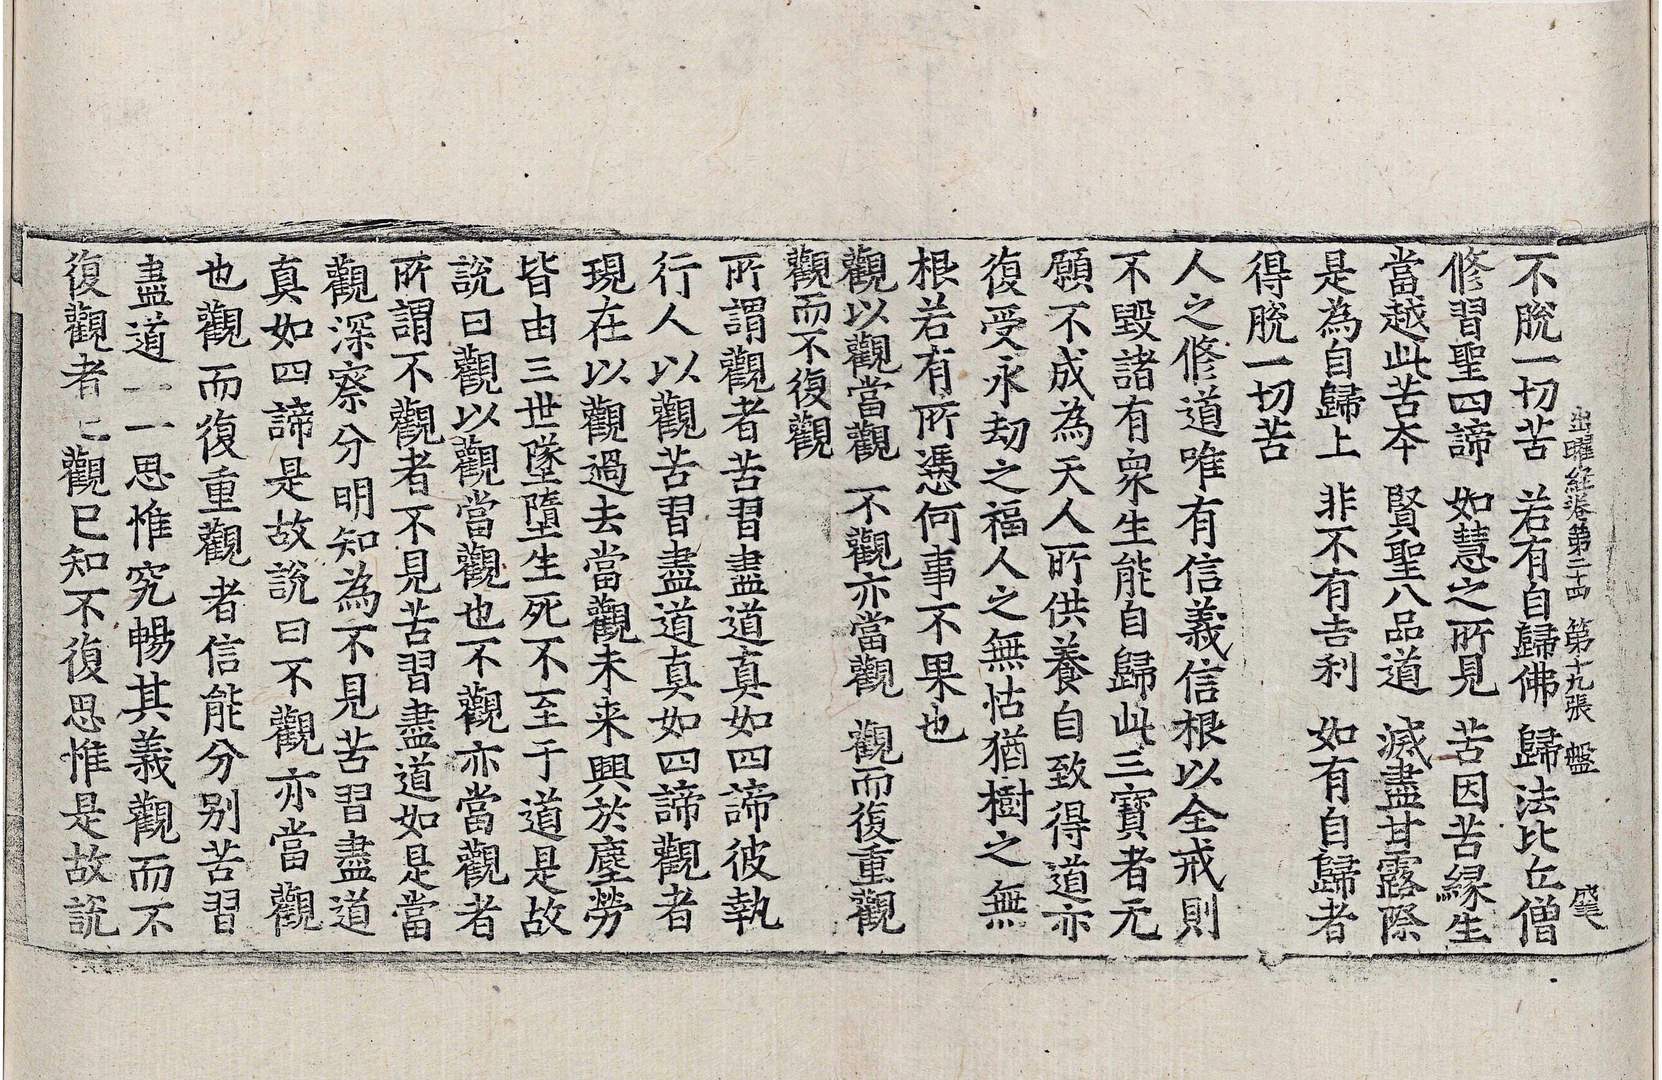 出曜経卷第二十四 第十九張 盤
不脫一切苦 若有自歸佛 歸法比丘僧
修習聖四諦 如慧之所見 苦因苦緣生
當越此苦本 賢聖八品道 滅盡甘露際
是為自歸上 非不有吉利 如有自歸者
得脫一切苦
人之修道唯有信義信根以全戒則
不毀諸有眾生能自歸此三寶者无
願不成為天人所供養自致得道亦
復受永劫之福人之無怙猶樹之無
根若有所憑何事不果也
觀以觀當觀 不觀亦當觀 觀而復重觀
觀而不復觀
所謂觀者苦習盡道真如四諦彼執
行人以觀苦習盡道真如四諦觀者
現在以觀過去當觀未来興於塵勞
皆由三世墜墮生死不至于道是故
說曰觀以觀當觀也不觀亦當觀者
所謂不觀者不見苦習盡道如是當
觀深察分明知為不見苦習盡道
真如四諦是故說曰不觀亦當觀
也觀而復重觀者信能分別苦習
盡道一一思惟究暢其義觀而不
復觀者已觀已知不復思惟是故說